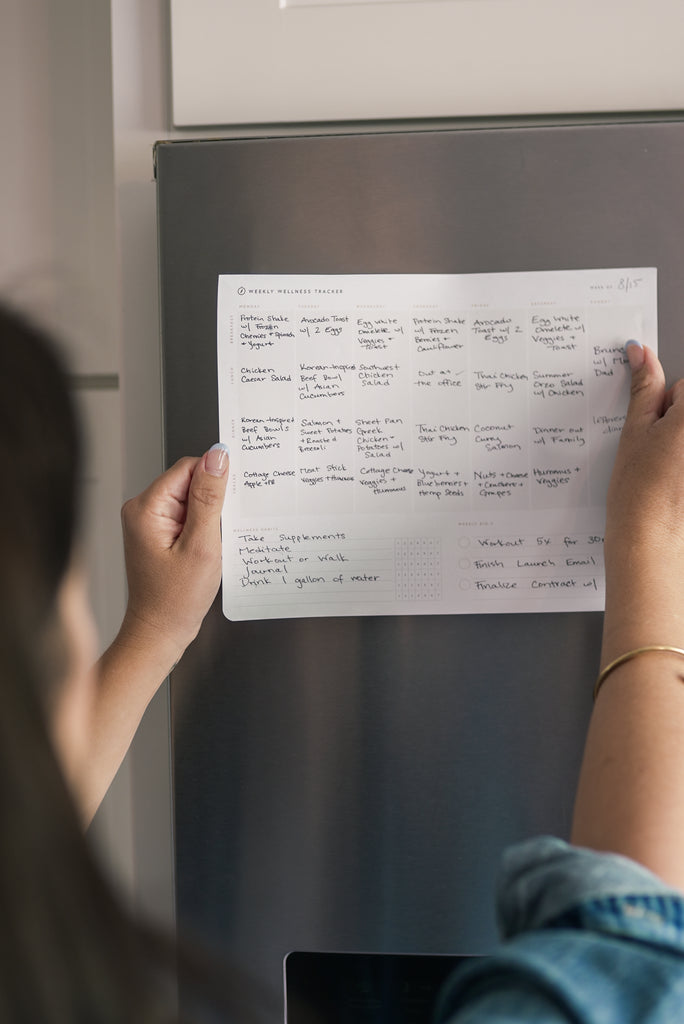 WEEKLY WELLNESS TRACKER
WEEK OF 8/15
MONDAY TUESDAY WEDNESDAY THURSDAY FRIDAY SATURDAY SUNDAY
BREAKFAST
Protein Shake
w/ Frozen
Cherries + Spinach
+ Yogurt
Avocado Toast
w/ 2 Eggs
Egg White
Omelete w/
Veggies +
Toast
Protein Shake
w/ Frozen
Berries +
Cauliflower
Avocado
Toast w/ 2
Eggs
Egg White
Omelete w/
Veggies +
Toast
Brunc
w/
Dad
LUNCH
Chicken
Caesar Salad
Korean-Inspired
Beef Bowl
w/ Asian
Cucumbers
Southwest
Chicken
Salad
Out at
the office
Thai Chicken
Stir Fry
Summer
Orzo Salad
w/ Chicken
DINNER
Korean-Inspired
Beef Bowls
w/ Asian
Cucumbers
Salmon +
Sweet Potatoes
+ Roasted
Broccoli
Sheet Pan
Greek
Chicken +
Potatoes w/
Salad
Thai Chicken
Stir Fry
Coconut
Curry
Salmon
Dinner out
w/ Family
leftovers
Cottage Cheese
Apple + PB
Meat Stick
Veggies + Hummus
Cottage Cheese
Veggies +
Hummus
Yogurt +
Blueberries +
Hemp Seeds
Nuts + Cheese
+ Crackers +
Grapes
Hummus +
Veggies
WELLNESS HABITS
Take Supplements
Meditate
Workout or Walk
Journal
Drink 1 gallon of water
WEEKLY
Workout 5x for 30
Finish Launch Email
Finalize Contract w/